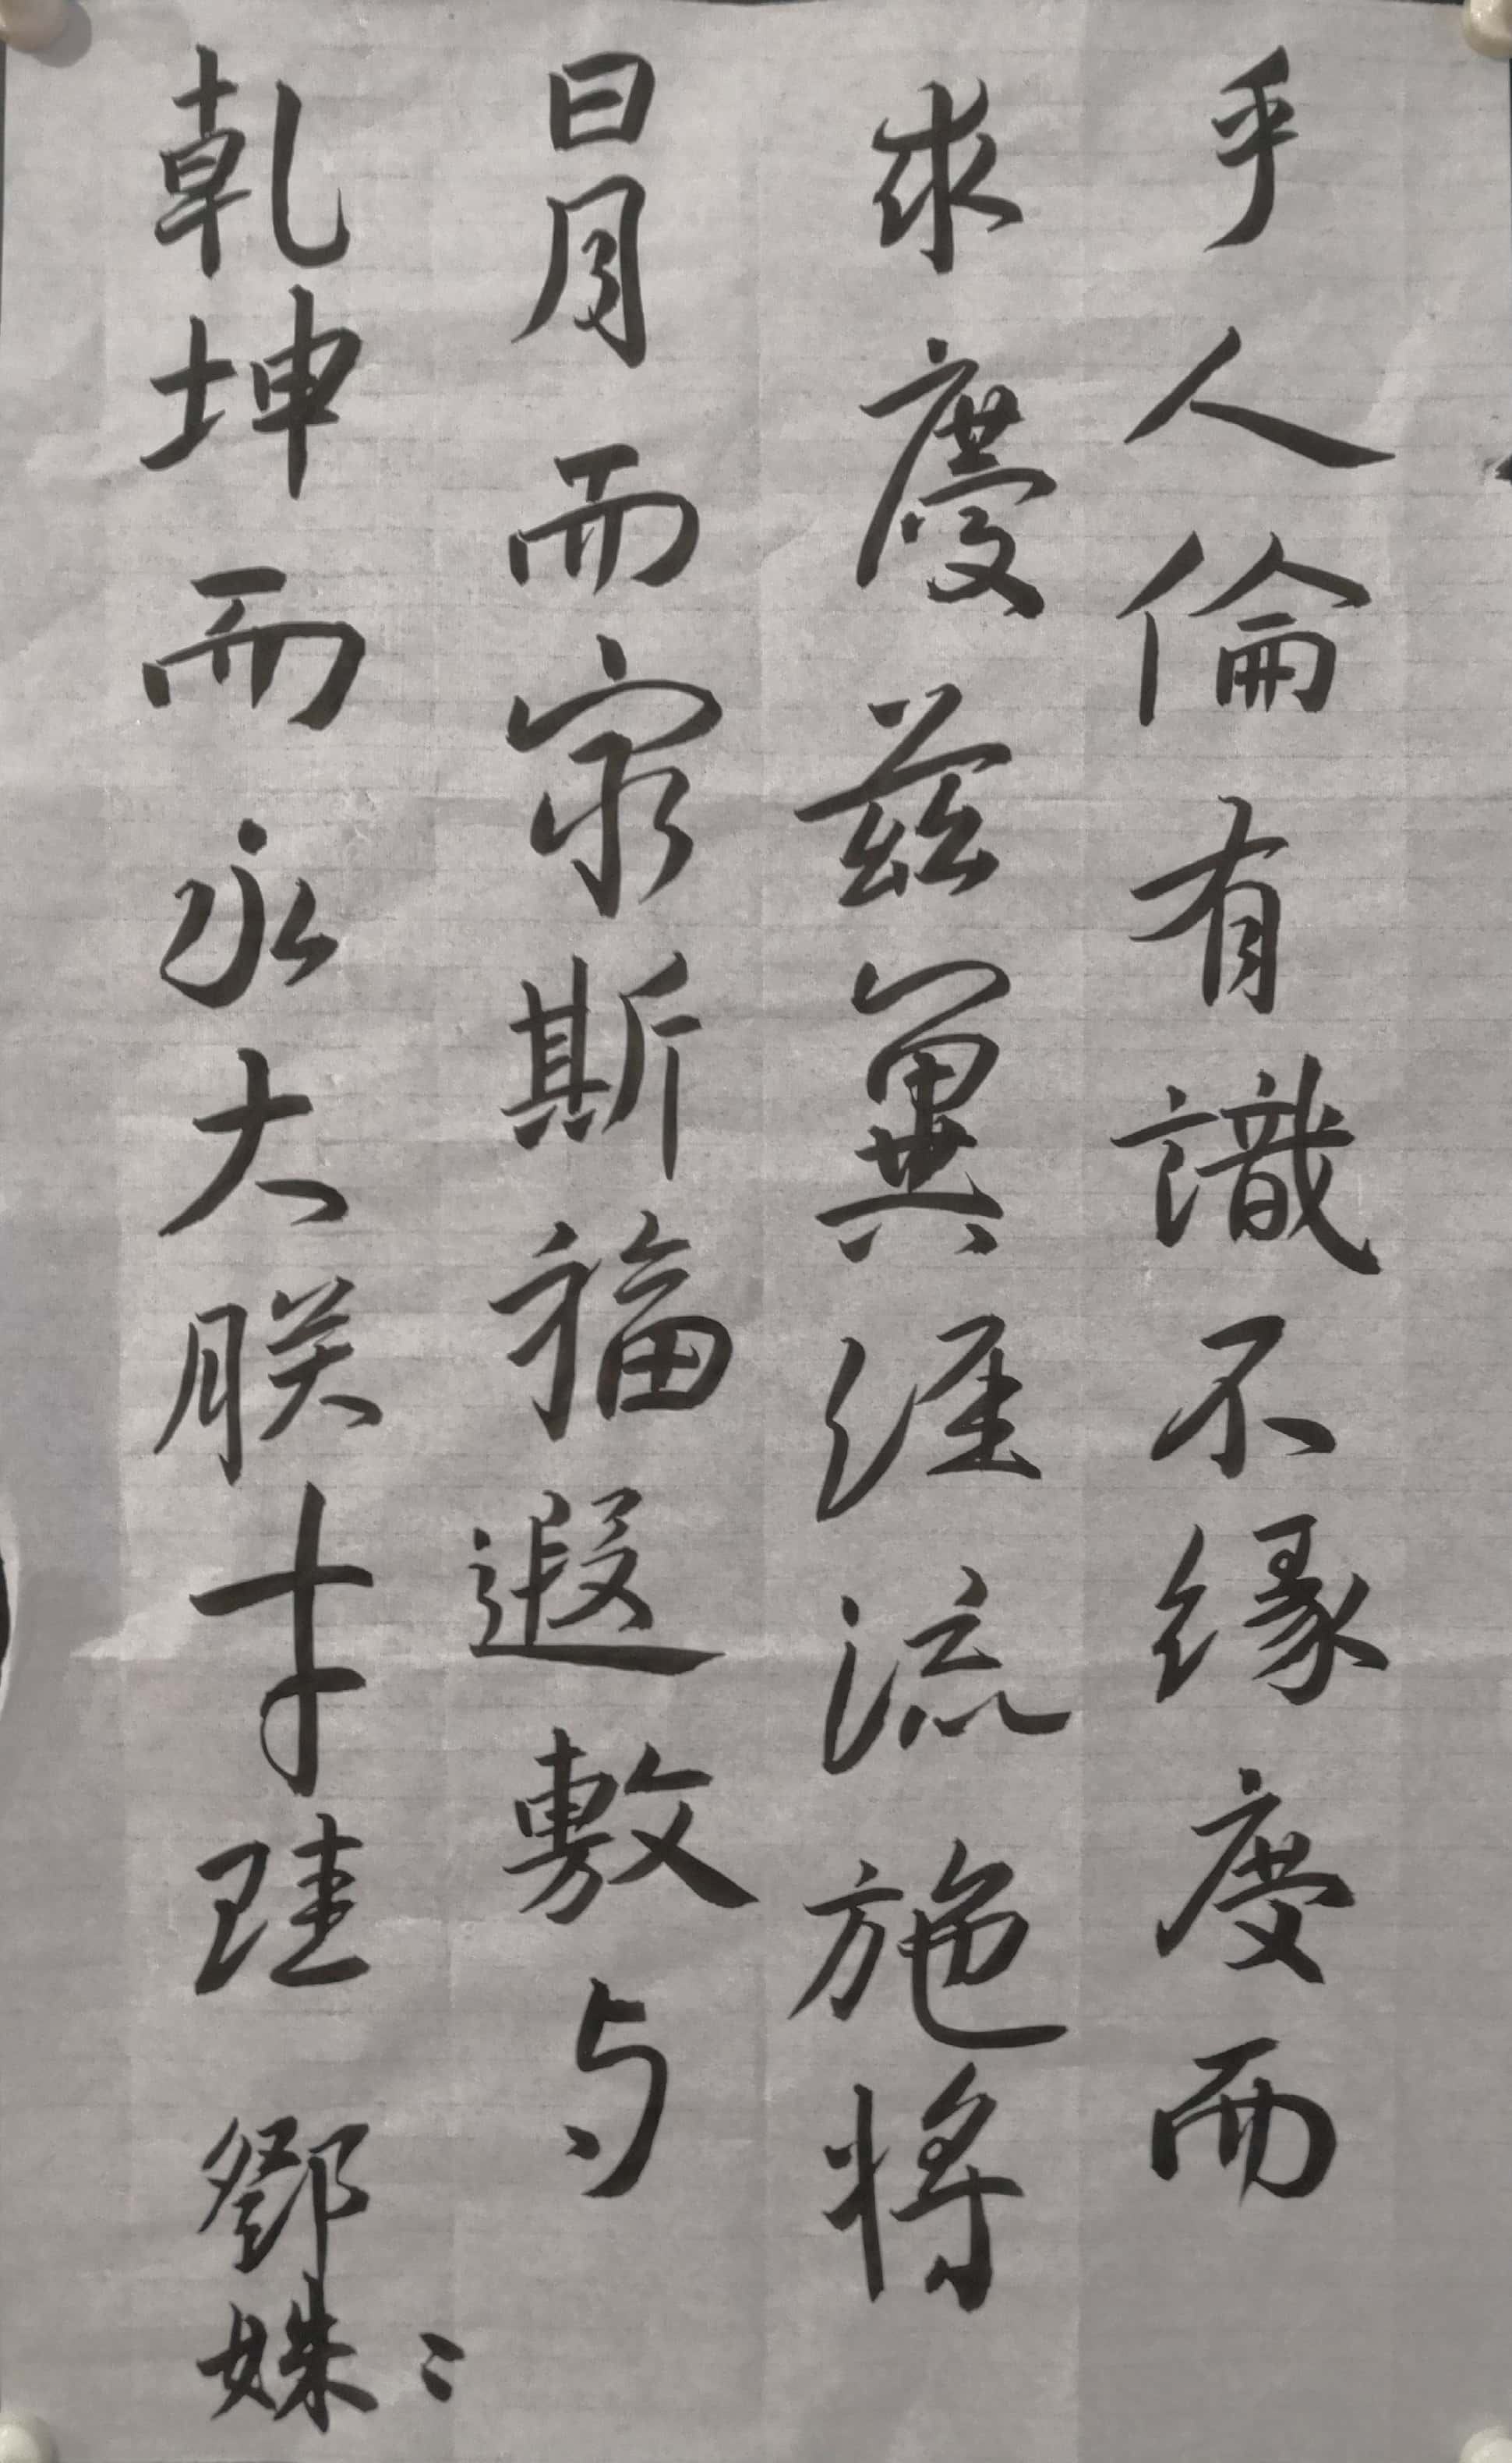 乎人倫有識不緣慶而
求慶茲冀經流施將
日月而斯福遐敷与
乾坤而永大朕珪
鄧姝